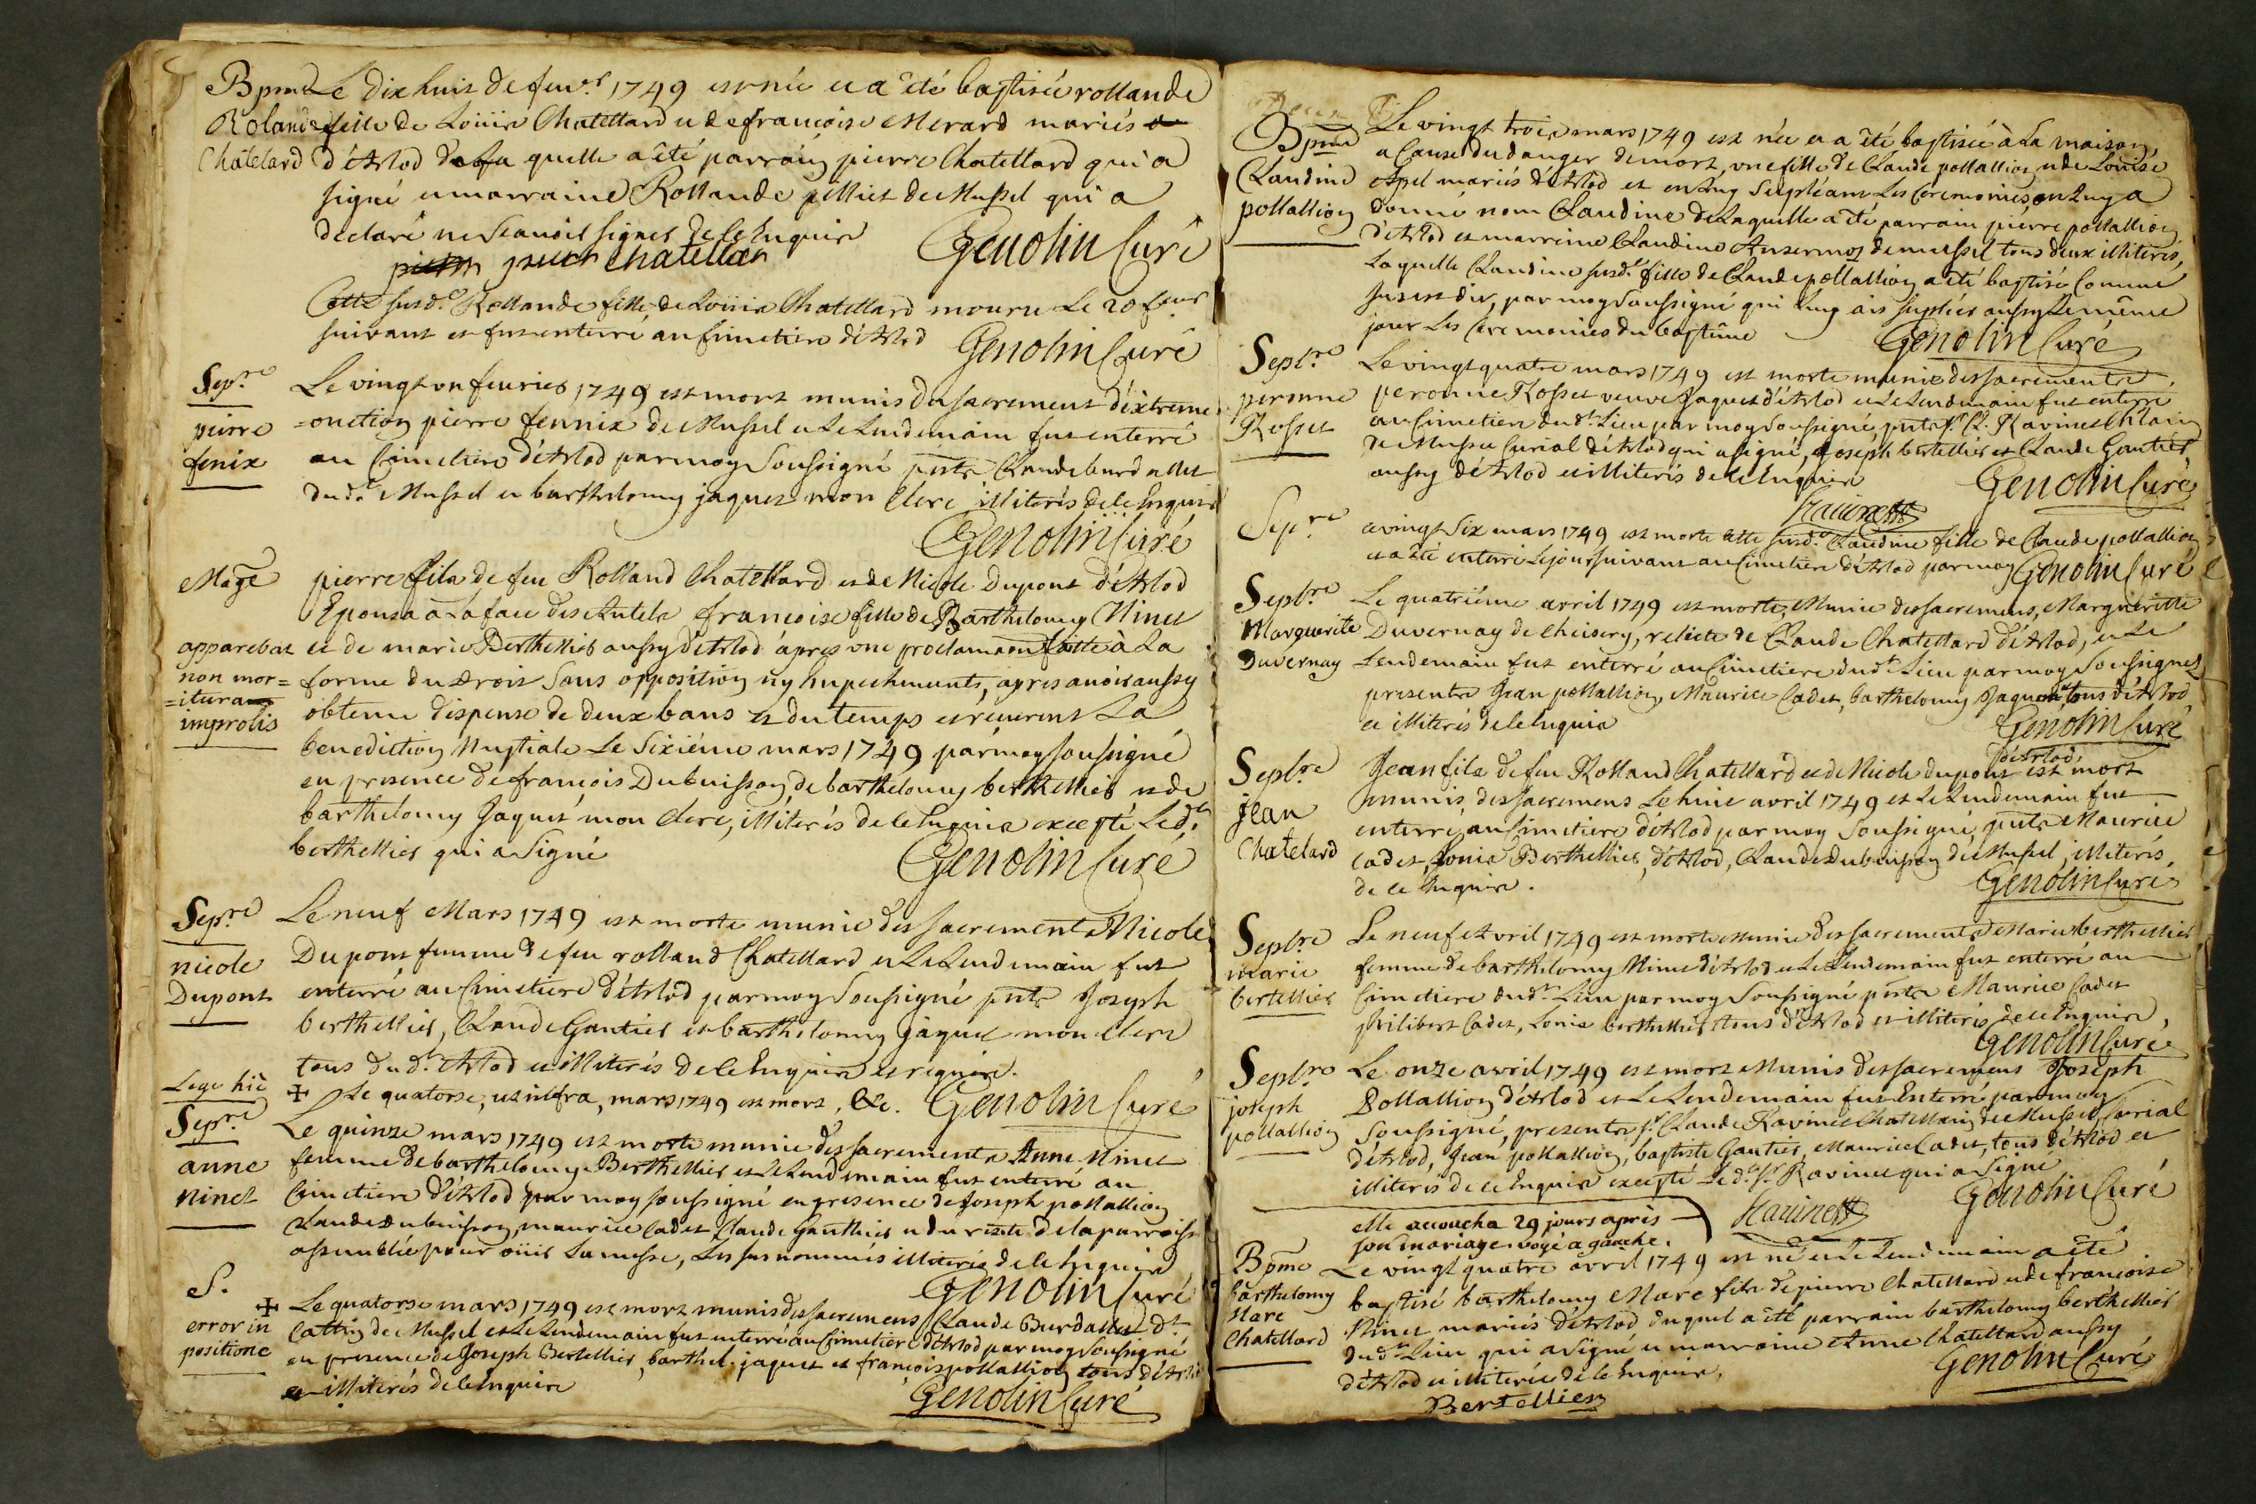 Bpme Le dix huit de feur. 1749 est née et a été baptisée rollande
Rolande fille de Loüis Chatellard et de francoise Merard mariés
Châtelard d'Arlod de la quelle a été parrain pierre Chatellard qui a
signé et marraine Rollande pilliet de Mussel qui a
declaré ne scauoir signer de ce Enquise
Genolin Curé
Chatellar
Cette susd.e Rollande fille de Loüis Chatellard mourut Le 20 feur
suivant et fut enterré au Cimetiere d'Arlod Genolin Curé
Sep.re Le vingt vn feurier 1749 est mort munis du sacrement d'extreme
pierre =onction pierre fennix de Mussel et Le Lendemain fut enterré
fenix au Cimetiere d'Arlod par moy soussigné pnts Claude burdallet
dud.t Mussel et barthelomy jaquet mon Clerc illiterés de ce Enquis
Genolin Curé
Mage pierre fils de feu Rolland Chatellard et de Nicole Dupont d'Arlod
Epousa à la face des Autels francoise fille de Barthelomy Ninet
apparebat et de marie Berthellier aussy d'Arlod àpres vne proclamaon faitte à La
non mor= forme du droit sans opposition ny Enpechements, apres auoir aussy
=itura obtenu dispense de deux bans et du temps et reçurent La
improlis
benediction Nuptiale Le sixiéme mars 1749 par moy soussigné
en presence de francois Dubuisson, de barthelomy berthellier et de
barthelomy Jaquet mon clerc, illiterés de ce Enquis excepté Led.t
berthellier qui a signé Genolin Curé
Sep.re Le neuf Mars 1749 est morte munie des sacrements Nicole
nicole Dupont femme de feu rolland Chatellard et Le Lendemain fut
Dupont enterré au Cimetiere d'Arlod par moy soussigné pnts Joseph
berthellier, Claude Gautier et barthelomy jaquet mon clerc
tous dud.t Arlod et illiterés de ce Enquis et requise.
Lege hic ✠ Le quatorse, ut infra, mars 1749 est mort, &c. Genolin Curé
Sep.re Le quinze mars 1749 est morte munie des sacrements Anne Ninet
anne femme de barthelomy Berthellier et Le Lendemain fut enterré au
ninet Cimetiere d'Arlod par moy soussigné en presence de Joseph pollallion
Claude dubuisson, maurice Cadet, Claude Gauthier et du reste de la parroisse
assemblée pour oüir La messe, Les susnommés illiterés de ce Enquis
Genolin Curé
S. ✠ Le quatorse mars 1749 est mort munis des sacremens Claude Burdallet d.t
error in Cattin de Mussel et Le Lendemain fut enterré au Cimetiere d'Arlod par moy soussigné
positione en presence de Joseph Bertellier, barthel. jaquet et françois pollallion tous d'Arlod
et illiterés de ce Enquise
Genolin Curé
Bpme Le vingt trois mars 1749 est née et a été baptisée à La maison,
Claudine a Cause du danger de mort, vne fille de Claude pollallion et de Louise
pollallion Apel mariés d'Arlod et en Luy supléant Les Ceremonies, on Luy a
donné nom Claudine de Laquelle a été parrain pierre pollallion
d'Arlod et marreine Claudine Ansermoz de mussel tous deux illiterés,
Laquelle Claudine susd.e fille de Claude pollallion a été baptisé Comme
jusest dit, par moy soussigné qui Luy ais supléés aussy Le même
jour Les Ceremonies du baptême Genolin Curé
Sepl.re Le vingt quatre mars 1749 est morte munie des sacrements
peronne peronne Rosset veuve Jaquet d'Arlod et Le Lendemain fut enterré
Rosset au Cimetiere dud.t Lieu par moy soussigné pnts s.r Cl. Ravinet Chlain
de Mussel Curial d'Arlod qui a signé, Joseph bertellier et Claude Gautier
aussy d'Arlod et illiterés de ce Enquis Genolin Curé
Ravinett
Sep.re Le vingt six mars 1749 est morte cette susd.e Claudine fille de Claude pollallion
et a été enterré Le jour suivant au Cimetiere d'Arlod par moy Genolin Curé
Sepl.re Le quatriéme avril 1749 est morte, Munie des sacremens, Margueritte
Marguerite Duvernay de Cheisery, relicte de Claude Chatellard d'Arlod, et Le
Duvernay Lendemain fut enterré au Cimetiere dud.t Lieu par moy soussigné
presents Jean pollallion, Maurice Cadet, barthelomy Jaquet tous d'Arlod
et illiterés de ce Enquis Genolin Curé
Sepl.re Jean fils de feu Rolland Chatellard et de Nicole dupont d'Arlod est mort
jean munis des sacremens Le huit avril 1749 et Le Lendemain fut
Chatelard enterré au Cimetiere d'Arlod par moy soussigné, pnts Maurice
Cadet, Louis Berthellier, d'Arlod, Claude Dubuisson de Mussel, illiterés,
de ce Enquis. Genolin Curé
Sepl.re Le neuf Avril 1749 est morte munie des sacrements Marie berthellier
marie femme de barthelomy Ninet d'Arlod et Le Lendemain fut enterré au
bertellier Cimetiere dud.t Lieu par moy soussigné pnts Maurice Cadet
philibert Cadet, Louis berthellier tous d'Arlod et illiterés de ce Enquise,
Genolin Curé
Sepl.re Le onze avril 1749 est mort Munis des sacremens Joseph
joseph Pollallion d'Arlod et Le Lendemain fut Enterré par moy
pollallion soussigné, presents s.r Claude Ravinet Chatellain de Mussel, Curial
d'Arlod, Jean pollallion, baptiste Gautier, Maurice Cadet, tous d'Arlod et
illiterés de ce Enquis excepté Led.t s.r Ravinet qui a signé
Genolin Curé
Ravinett
elle accoucha 29 jours après
son mariage. voyé a gauche.
Bpme Le vingt quatre avril 1749 est né et Le Lendemain a été
barthelomy baptisé barthelomy Marc fils de pierre Chatellard et de françoise
Marc Ninet mariés d'Arlod duquel a été parrain barthelomy berthellier
Chatellard dud.t Lieu qui a signé et marraine Anne Chatellard aussy
d'Arlod et illiterée de ce Enquis, Genolin Curé
Bertellier